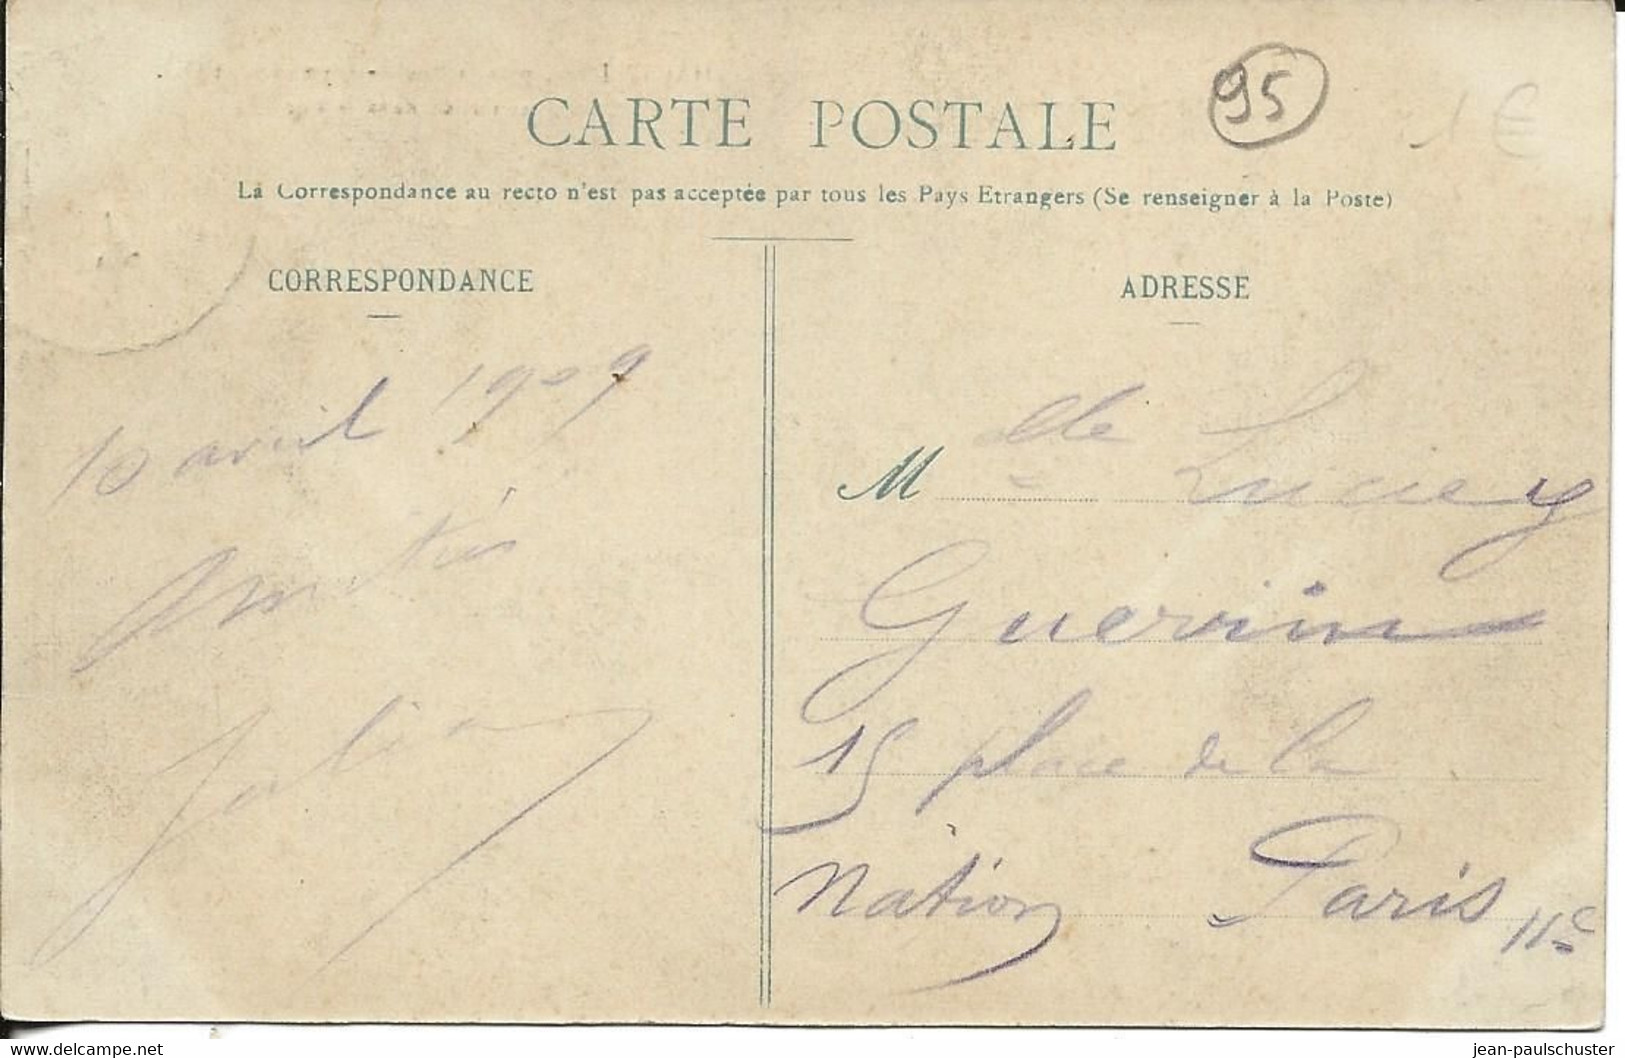 95
1 €
CARTE POSTALE
La Correspondance au recto n'est pas acceptée par tous les Pays Etrangers (Se renseigner à la Poste)
CORRESPONDANCE
10 avril 1909
Amitiés
ADRESSE
Mlle
Guerin
15 place de la
Nation Paris 11e
jean-paulschuster